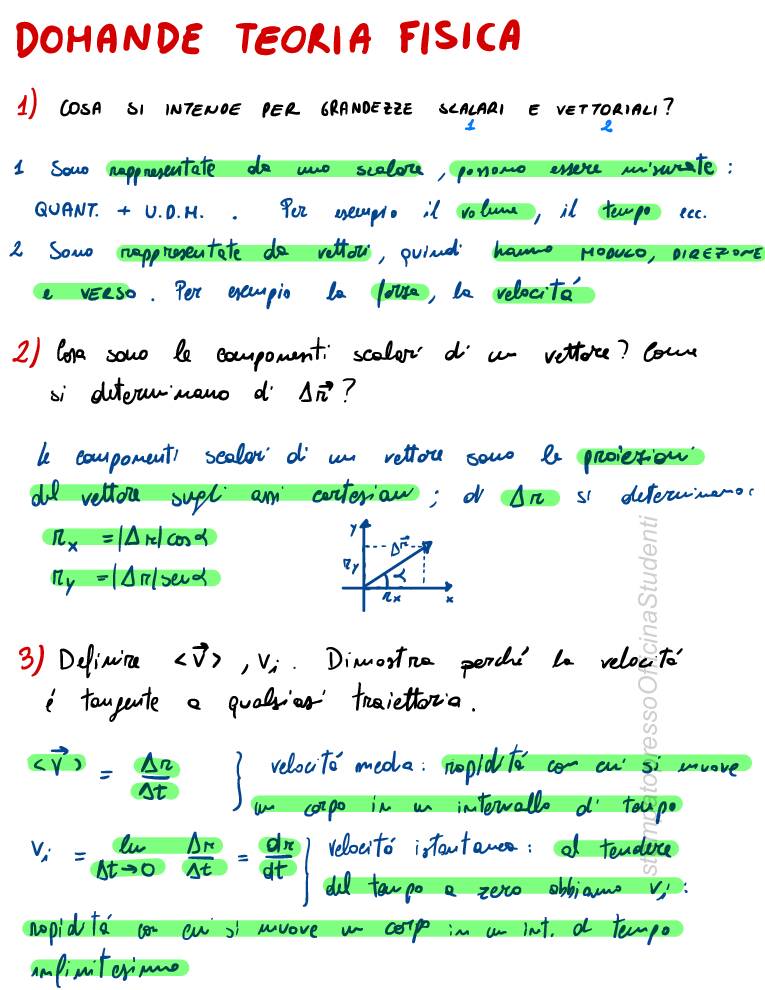 DOMANDE TEORIA FISICA
1) COSA SI INTENDE PER GRANDEZZE SCALARI E VETTORIALI?
1 2
1 Sono rappresentate da uno scalare, possono essere misurate:
QUANT. + U.D.M. . Per esempio il volume, il tempo ecc.
2 Sono rappresentate da vettori, quindi hanno MODULO, DIREZIONE
e VERSO. Per esempio la forza, la velocitá
2) Cosa sono le componenti scalari di un vettore? Come
si determinano di Δr⃗?
Le componenti scalari di un vettore sono le proiezioni
del vettore sugli assi cartesiani; di Δr si determinano:
r_x = |Δr|cosα
r_y = |Δr|senα
y Δr⃗ r_y α r_x x
3) Definire <v⃗>, v_i. Dimostra perché la velocitá
é tangente a qualsiasi traiettoria.
<v⃗> = Δr/Δt } velocitá media: rapiditá con cui si muove
un corpo in un intervallo di tempo
v_i = lim Δt→0 Δr/Δt = dr/dt } velocitá istantanea: al tendere
del tempo a zero abbiamo v_i:
rapiditá con cui si muove un corpo in un int. di tempo
infinitesimo
stampatopressoOfficinaStudenti